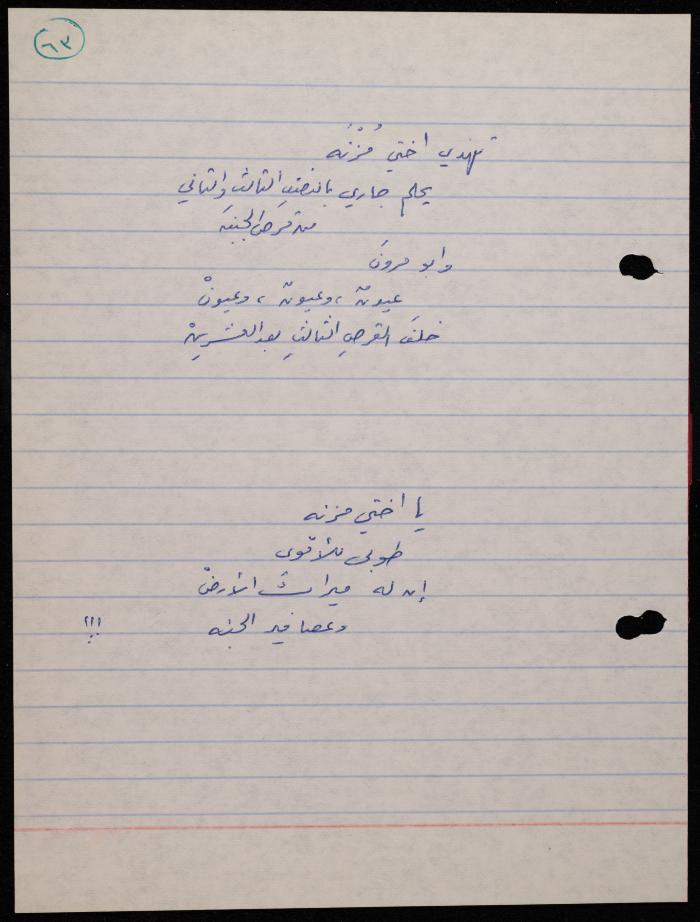 ٦٣
تهذي اختي مُزْنَه
يحلم جاري بالنصفِ الثالث والثاني
من قرص الجبنَه
وابو مرونَ
عيونٌ ، وعيونٌ ، وعيونْ
خلفَ القرصِ الثالثِ بعد العشرينْ
يا اختي مزنه
طوبى للأقوى
إن له ميراثَ الأرضْ
وعصافير الجنه !!!